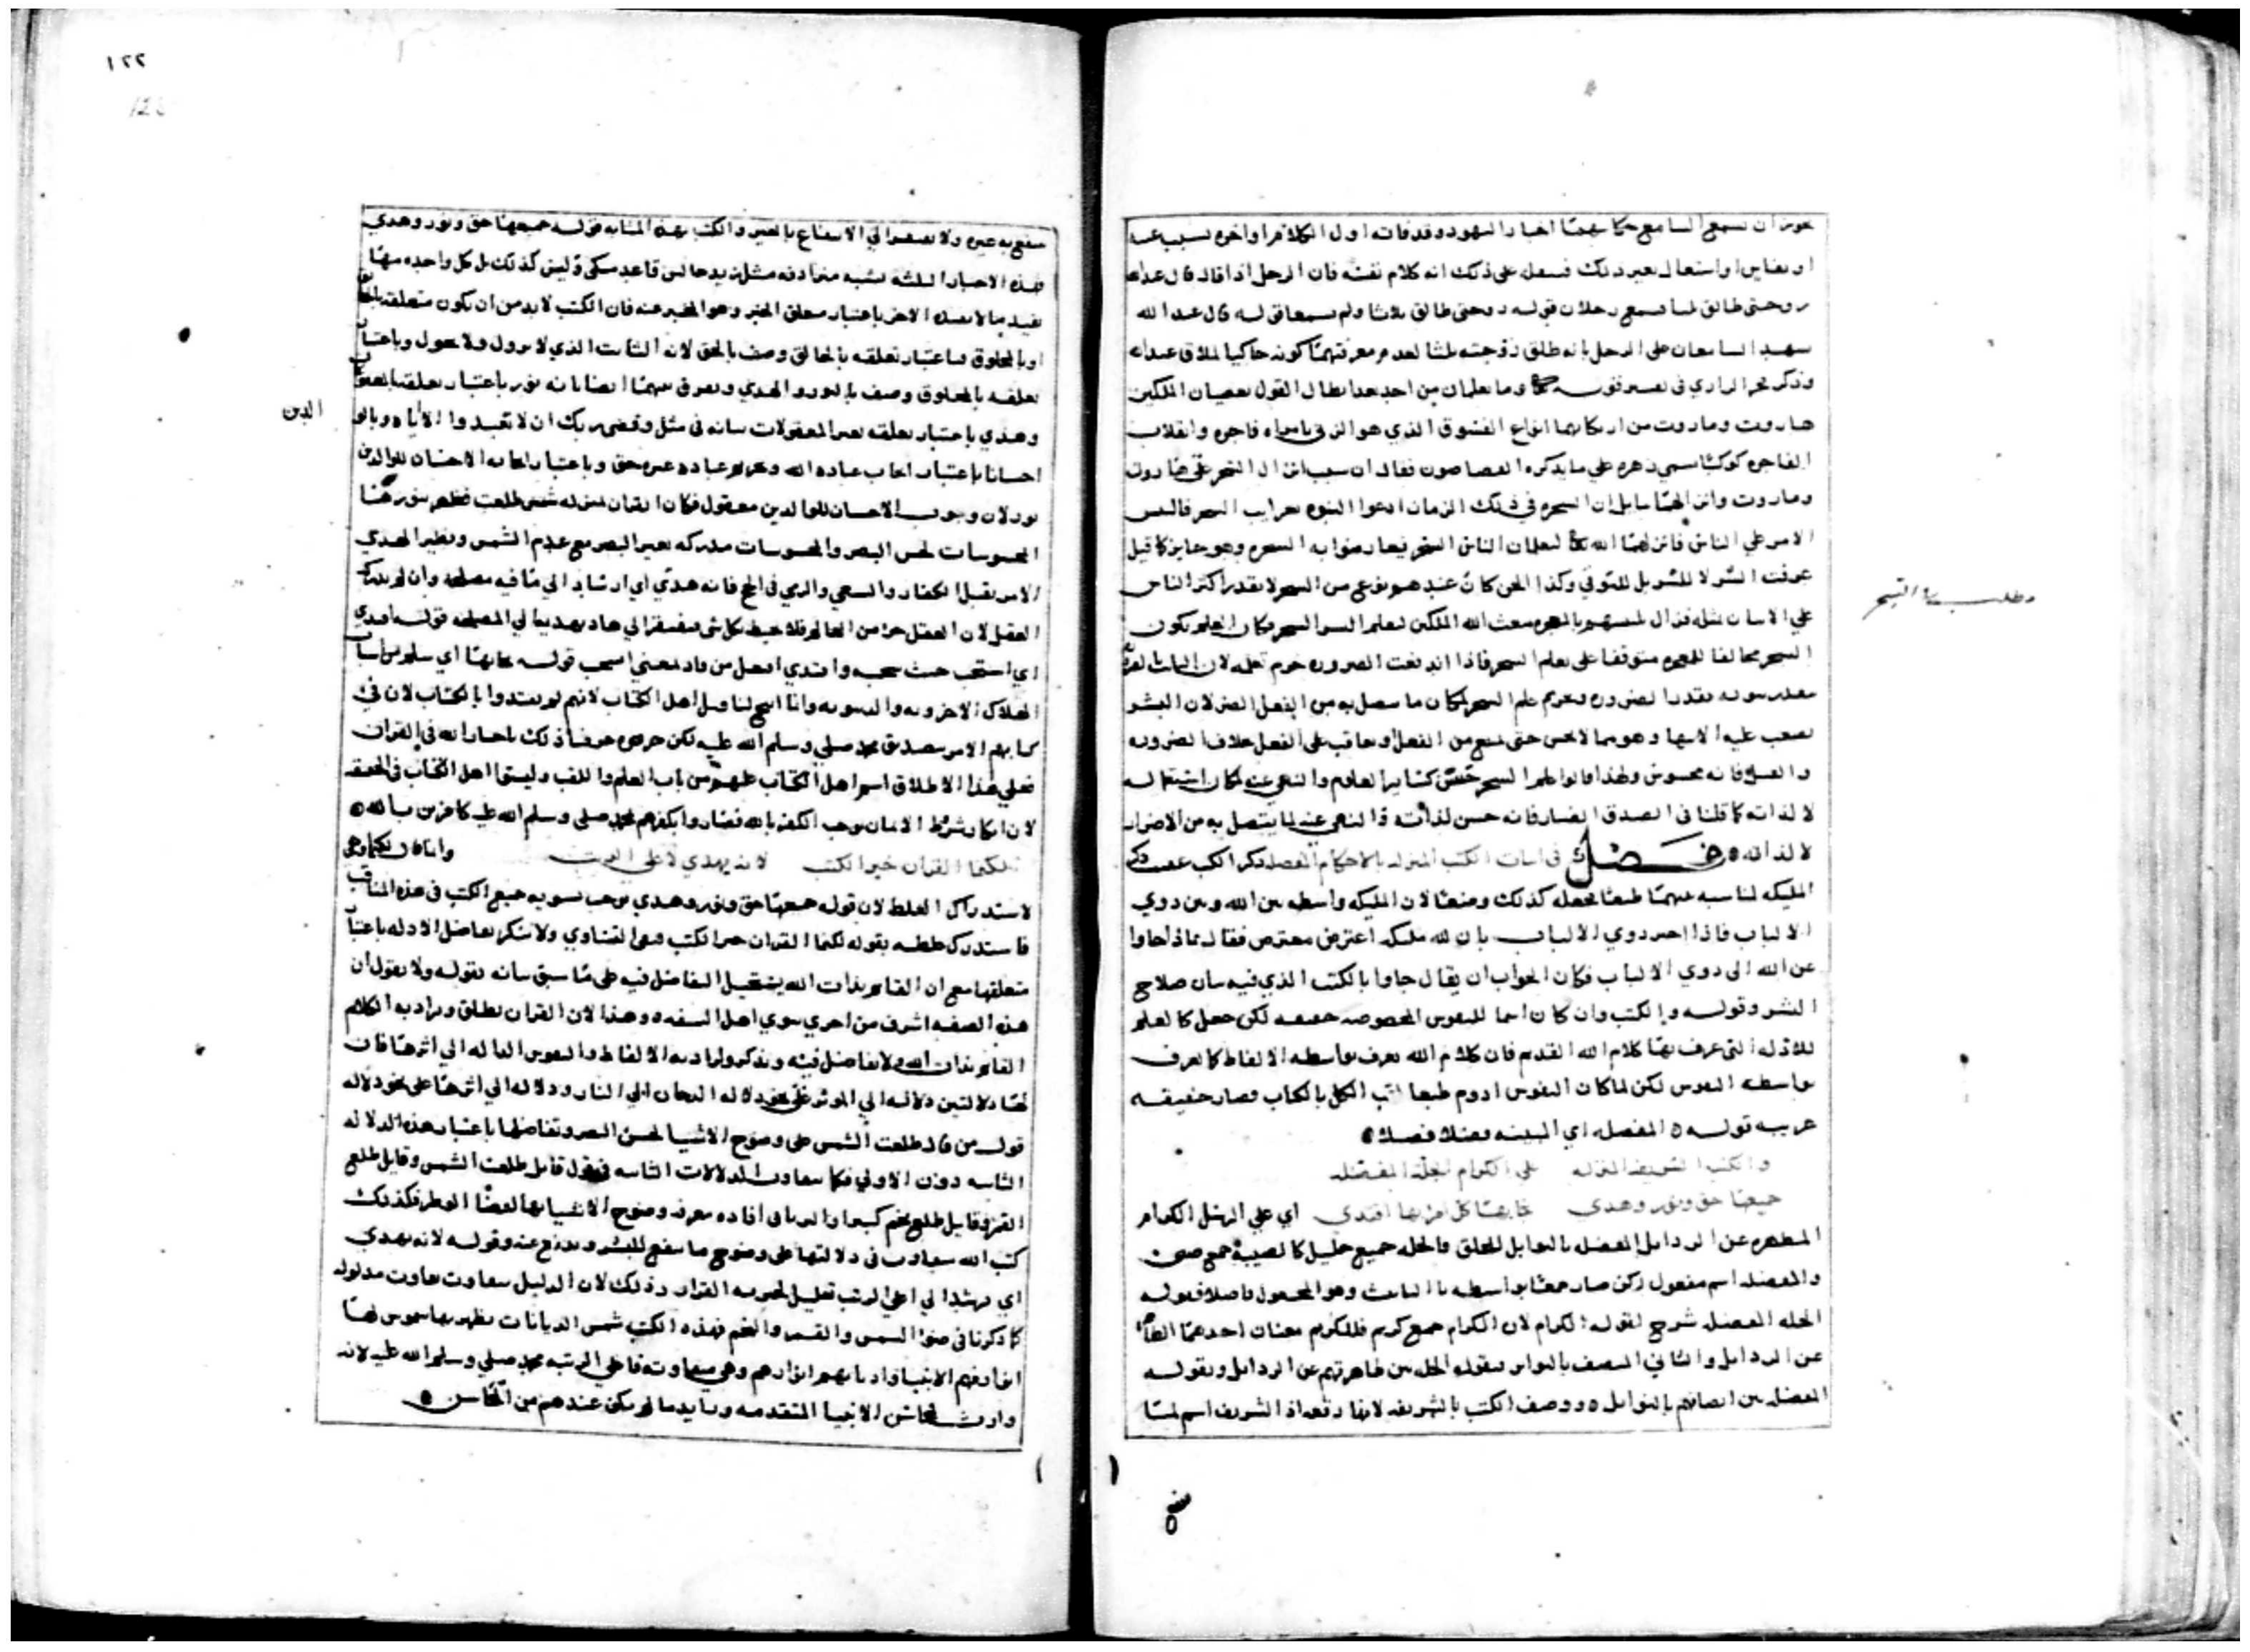 يجوز ان يسمع السامع حكايتهما اخبار اليهود وقد فاته اول الكلام او اخره بسبب
او نعاس او اشتعال بغير ذلك فيحمل على ذلك انه كلام نفسه فان الرجل اذا قال قال عبدالله
زوجتي طالق ثلثا فسمع رجلان قوله زوجتي طالق ثلاثا ولم يسمعا قوله قال عبد الله
شهد السامعان على الرجل بانه طلق زوجته ثلثا لعدم معرفتهما كونه حاكيا لطلاق عبدالله
وذكر فخر الرازي في تفسير قوله وما يعلمان من احد بعد ابطال القول بعصيان الملكين
هاروت وماروت من ارتكابهما انواع الفسوق الذي هو الزنى بامراه فاجره وانقلاب
الفاجره كوكبا سمي زهره على ما يذكره القصاصون فقال ان سبب انزال السحر على هاروت
وماروت وانزالهما ببابل ان السحره في ذلك الزمان ادعوا النبوه بغرايب السحر فالتبس
الامر على الناس فانزلهما الله يعلمان الناس السحر ليعارضوا به السحره وهو جايز كما قيل
عرفت الشر لا للشر بل للتوقي وكذا الجن كان عندهم نوع من السحر لا يقدر اكثر الناس
على الاتيان بمثله فبعث الله الملكين لتعليم البشر السحر فكان العلم بكون
السحر مخالفا للمعجزه متوقفا على تعلم السحر فاذا اندفعت الضروره حرم تعلمه لان الثابت بالضروره
يتقدر ثبوته بقدر الضروره وتحريم علم السحر لمكان ما يتصل به من الفعل المضر لان البشر
والعمل فانه محسوس ولهذا قالوا علم السحر حسن كساير العلوم والنهي عنه لمكان استعماله
لا لذاته كما قلنا في الصدق الضار فانه حسن لذاته والنهي عنه لما يتصل به من الاضرار
لا لذاته فصل في اثبات الكتب المنزله بالاحكام المفصله ذكر الكتب عقب ذكر
المليكه لمناسبه بينهما طبعا فجعله كذلك وضعا لان المليكه واسطه بين الله وبين ذوي
الالباب فاذا اخبر ذوي الالباب بان لله مليكه اعترض معترض فقال بماذا جاوا
عن الله الى ذوي الالباب فكان الجواب ان يقال جاوا بالكتب الذي فيه بيان صلاح
البشر وقوله والكتب وان كان اسما للنقوش المخصوصه حقيقه لكن جعل كالعلم
للادله التي عرف بها كلام الله القديم فان كلام الله يعرف بواسطه الالفاظ كما يعرف
بواسطه النقوش لكن لما كان النقوش ادوم طبعا لقب الكل بالكتاب فصار حقيقه
عرفيه قوله المفصله اي المبينه فصلا فصلا
والكتب الشريفه المنزله على الكرام الجلة المفضله
جميعها حق ونور وهدى بها اقتدي اي على الرسل الكرام
المطهره عن الرذايل المفضله بالفضايل للخلق والجله جميع جليل كالصبية جمع صبي
والمفضله اسم مفعول لكن صار جمعا بواسطه تا التانيث وهو المجعول فاضلا فقوله
الجله المفضله شرح لقوله الكرام لان الكرام جمع كريم فللكريم معنيان احدهما الطاهر
عن الرذايل والثاني المتصف بالنوايل فبقوله الجله بين طهارتهم عن الرذايل وبقوله
المفضله بين اتصافهم بالنوايل ووصف الكتب بالشريفه لانها رفعه اذ الشريف اسم لما
مطلب بيان السحر
١٢٢
ينتفع به غيره ولا يفتقر الى الانتفاع بالغير والكتب بهذه المثابه قوله جميعها حق ونور وهدى
فهذه الاخبار الثلثه ليست مترادفه مثل زيد جالس قاعد متكي وليس كذلك بل كل واحد منها
يفيد ما لا يفيده الاخر باعتبار متعلق الخبر وهو المخبر عنه فان الكتب لا بد من ان يكون متعلقه بالخالق
او بالمخلوق فباعتبار تعلقه بالخالق وصف بالحق لانه الثابت الذي لا يزول ولا يحول وباعتبار
تعلقه بالمخلوق وصف بالنور والهدي ونفرق بينهما ايضا بانه نور باعتبار تعلقه بالمعقولات
وهدي باعتبار تعلقه بغير المعقولات بيانه في مثل وقضى ربك ان لا تعبدوا الا اياه وبالو
الدين
احسانا باعتبار ايجاب عباده الله وتحريم عباده غيره حق وباعتبار ايجابه الاحسان للوالدين
نور لان وجوب الاحسان للوالدين معقول فكان القران بمنزله شمس طلعت فظهر بنورها
المحسوسات لحس البصر والمحسوسات مدركه بغير البصر مع عدم الشمس ونظير الهدي
الامر بقتل الكفار والسعي والرمي في الحج فانه هدي اي ارشاد الى ما فيه مصلحه وان لم يدركه
العقل لان العقل جزا من العالم فلا يحيط بكل شي فيفتقر الى هاد يهديه الى المصلحه قوله اقتدي
الهلاك الاخرويه والدنيويه وانما لم يقل اهل الكتاب لانهم لم يهتدوا بالكتاب لان في
كتابهم الامر بتصديق محمد صلى وسلم الله عليه لكن حرفوه حرفا ذلك باخبار الله في القران
فعلى هذا الاطلاق اسم اهل الكتاب عليهم من باب العلم واللقب وليسوا اهل الكتاب في الحقيقه
لان انكار شرط الايمان يوجب الكفر بالله فصاروا بكفرهم بمحمد صلى وسلم الله عليه كافرين بالله
لكنما القران خير الكتب لانه يهدي لاعلى الرتب وانما قال لكنما وهي
لاستدراك الغلط لان قوله جميعها حق ونور وهدي يوجب تسويه جميع الكتب في هذه المناقب
فاستدرك غلطه بقوله لكنما القران خير الكتب فنفى التساوي ولا ينكر تفاضل الادله باعتبار
متعلقها مع ان القايم بذات الله يستحيل التفاضل فيه على ما سبق بيانه بقوله ولا يقول ان
هذه الصفه اشرف من اخري سوي اهل السفه وهذا لان القران يطلق ويراد به الكلام
القايم بذات الله ولا تفاضل فيه ويذكر ويراد به الالفاظ والنقوش الداله الى اثرها فان
لها دلالتين دلاله الى الموثر على نحو دلاله الدخان الى النار ودلاله الى اثرها على نحو دلاله
قول من قال طلعت الشمس على وضوح الاشيا لحس البصر وتفاضلها باعتبار هذه الدلاله
الثانيه دون الاولي فكما يتفاوت الدلالات الثانيه في قول قايل طلعت الشمس وقايل طلع
القمر وقايل طلع نجم كبير او الثريا في افاده معرفه وضوح الاشيا بها لفضا النظر فكذلك
كتب الله يتفاوت في دلالتها على وضوح ما ينفع للبشر ويدفع عنه وقوله لانه يهدي
اي يرشد الى اعلى الرتب تعليل لخيريه القران وذلك لان الدليل يتفاوت بتفاوت مدلوله
كما ذكرنا في ضوء الشمس والقمر والنجم فهذه الكتب شمس الديانات يظهر بها نفوس لها
انوار فهم الانبيا واديانهم انوارهم وهي متفاوته فاعلى الرتبه محمد صلى وسلم الله عليه لانه
وارث لمحاسن الانبيا المتقدمه وزايد ما لم يكن عندهم من المحاسن